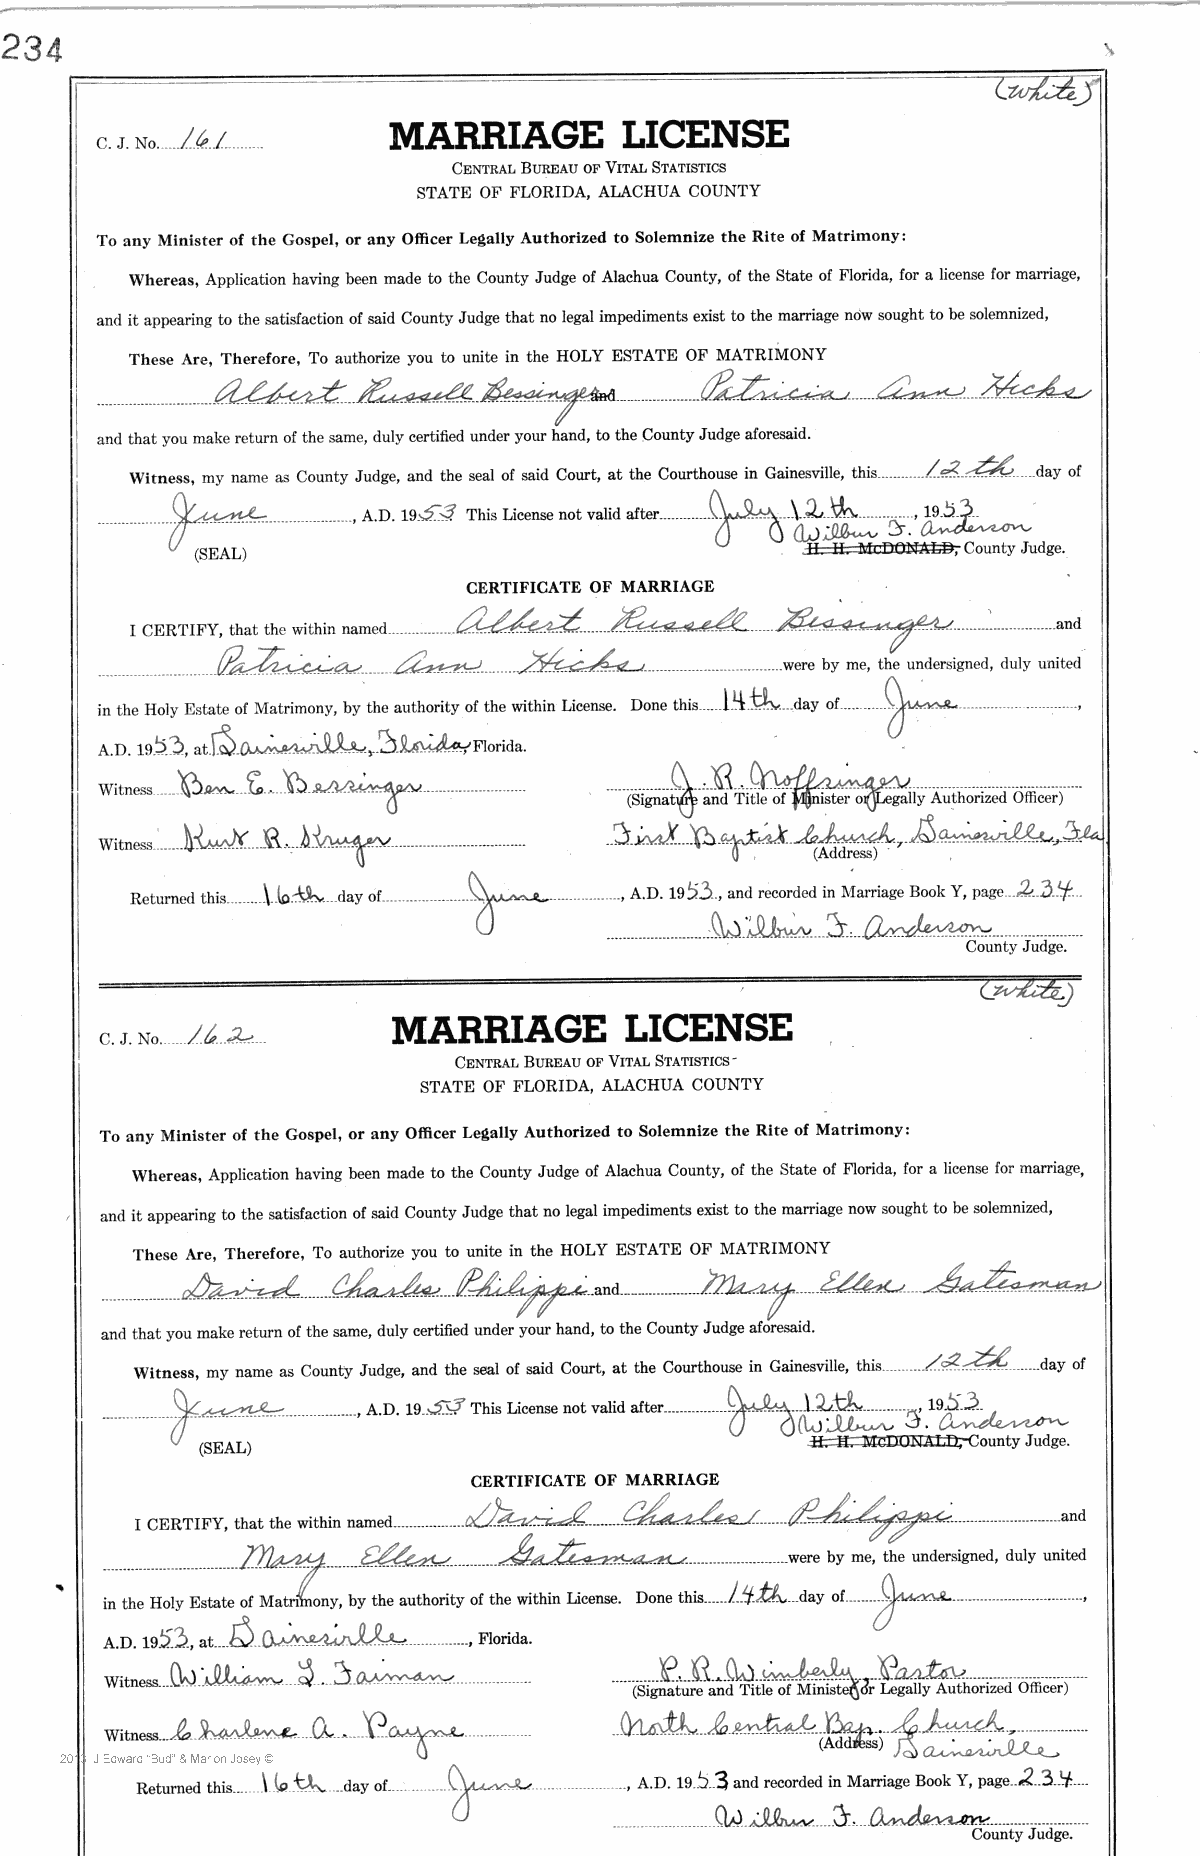 234
(White)
C. J. No. 161
MARRIAGE LICENSE
CENTRAL BUREAU OF VITAL STATISTICS
STATE OF FLORIDA, ALACHUA COUNTY
To any Minister of the Gospel, or any Officer Legally Authorized to Solemnize the Rite of Matrimony:
Whereas, Application having been made to the County Judge of Alachua County, of the State of Florida, for a license for marriage,
and it appearing to the satisfaction of said County Judge that no legal impediments exist to the marriage now sought to be solemnized,
These Are, Therefore, To authorize you to unite in the HOLY ESTATE OF MATRIMONY
Albert Russell Bessinger and Patricia Ann Hicks
and that you make return of the same, duly certified under your hand, to the County Judge aforesaid.
Witness, my name as County Judge, and the seal of said Court, at the Courthouse in Gainesville, this 12th day of
June, A.D. 1953 This License not valid after July 12th, 1953
Wilbur F. Anderson
(SEAL) H. H. McDONALD, County Judge.
CERTIFICATE OF MARRIAGE
I CERTIFY, that the within named Albert Russell Bessinger and
Patricia Ann Hicks were by me, the undersigned, duly united
in the Holy Estate of Matrimony, by the authority of the within License. Done this 14th day of June,
A.D. 1953, at Gainesville, Florida, Florida.
Witness Ben E. Bessinger J. R. Noffsinger
(Signature and Title of Minister or Legally Authorized Officer)
Witness Kurt R. Kruger First Baptist Church, Gainesville, Fla
(Address)
Returned this 16th day of June, A.D. 1953, and recorded in Marriage Book Y, page 234
Wilbur F. Anderson
County Judge.
(White)
C. J. No. 162
MARRIAGE LICENSE
CENTRAL BUREAU OF VITAL STATISTICS
STATE OF FLORIDA, ALACHUA COUNTY
To any Minister of the Gospel, or any Officer Legally Authorized to Solemnize the Rite of Matrimony:
Whereas, Application having been made to the County Judge of Alachua County, of the State of Florida, for a license for marriage,
and it appearing to the satisfaction of said County Judge that no legal impediments exist to the marriage now sought to be solemnized,
These Are, Therefore, To authorize you to unite in the HOLY ESTATE OF MATRIMONY
David Charles Philippi and Mary Ellen Gatesman
and that you make return of the same, duly certified under your hand, to the County Judge aforesaid.
Witness, my name as County Judge, and the seal of said Court, at the Courthouse in Gainesville, this 12th day of
June, A.D. 1953 This License not valid after July 12th, 1953
Wilbur F. Anderson
(SEAL) H. H. McDONALD, County Judge.
CERTIFICATE OF MARRIAGE
I CERTIFY, that the within named David Charles Philippi and
Mary Ellen Gatesman were by me, the undersigned, duly united
in the Holy Estate of Matrimony, by the authority of the within License. Done this 14th day of June,
A.D. 1953, at Gainesville, Florida.
Witness William L. Faiman P. R. Wimberly, Pastor
(Signature and Title of Minister or Legally Authorized Officer)
Witness Charlene A. Payne North Central Bap. Church,
(Address) Gainesville
J Edward "Bud" & Marion Josey ©
Returned this 16th day of June, A.D. 1953 and recorded in Marriage Book Y, page 234
Wilbur F. Anderson
County Judge.